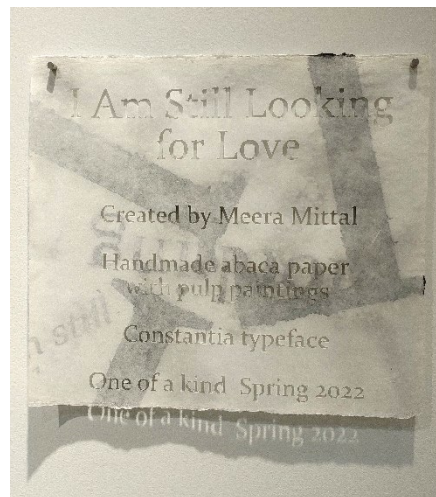 I Am Still Looking
for Love
Created by Meera Mittal
Handmade abaca paper
with pulp paintings
Constantia typeface
n still
One of a kind Spring 2022
One of a kind Spring 2022